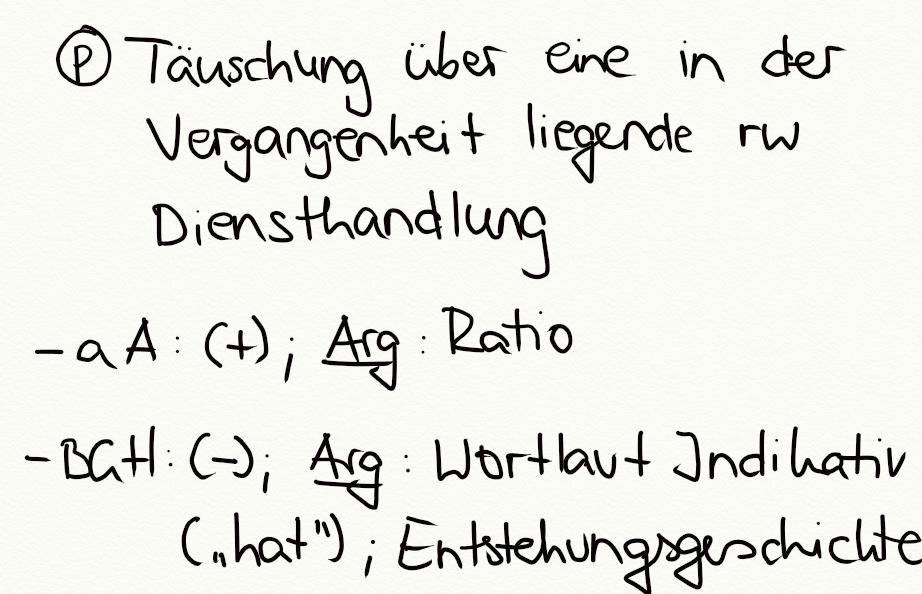 Ⓟ Täuschung über eine in der
Vergangenheit liegende rw
Diensthandlung
- aA: (+); Arg: Ratio
- BGH: (-); Arg: Wortlaut Indikativ
("hat"); Entstehungsgeschichte